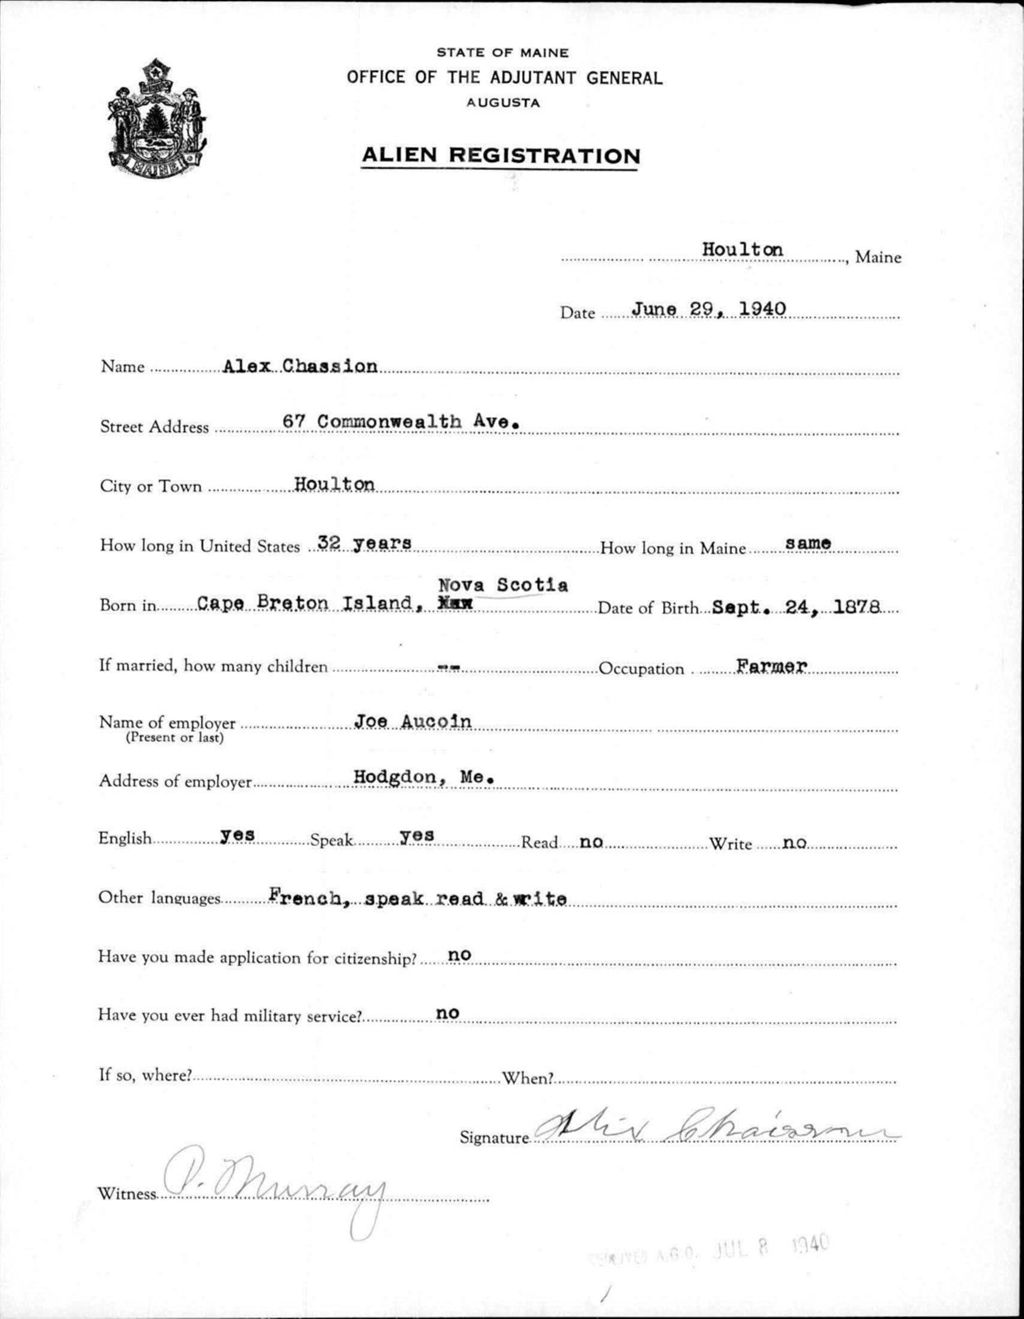 STATE OF MAINE
OFFICE OF THE ADJUTANT GENERAL
AUGUSTA
ALIEN REGISTRATION
MAINE
Houlton, Maine
Date June 29, 1940
Name Alex Chassion
Street Address 67 Commonwealth Ave.
City or Town Houlton
How long in United States 32 years How long in Maine same
Nova Scotia
Born in Cape Breton Island, Date of Birth Sept. 24, 1878
If married, how many children -- Occupation Farmer
Name of employer Joe Aucoin
(Present or last)
Address of employer Hodgdon, Me.
English yes Speak yes Read no Write no
Other languages French, speak read & write
Have you made application for citizenship? no
Have you ever had military service? no
If so, where? When?
Signature Alix Chaisson
Witness P. Murray
A.G.O. JUL 8 1940